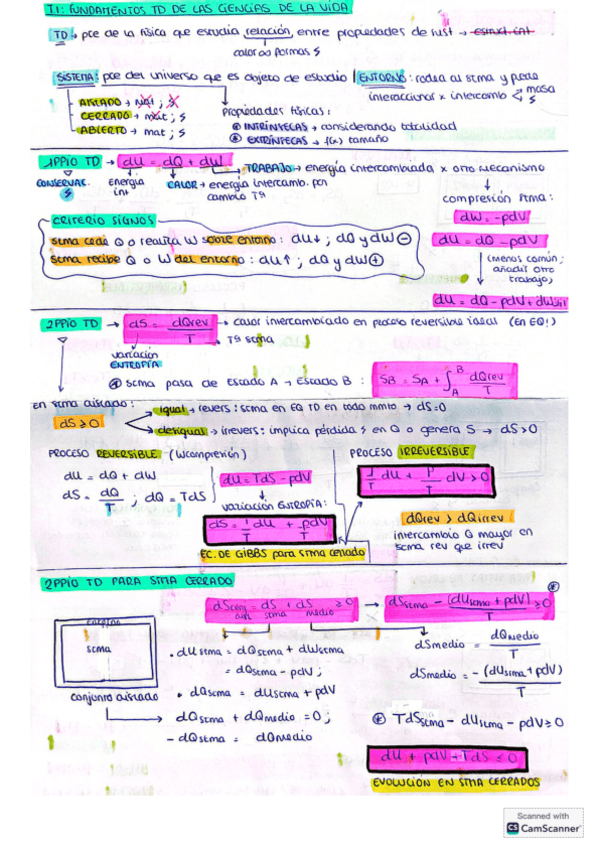 T1: FUNDAMENTOS TD DE LAS CIENCIAS DE LA VIDA
TD → pte de la física que estudia relación entre propiedades de sust → estruct int
calor ≠ formas ⚡
SISTEMA: pte del universo que es objeto de estudio | ENTORNO: rodea al stma y puede
interaccionar x intercamb < masa ⚡
AISLADO → mat ; ⚡
CERRADO → mat ; ⚡
ABIERTO → mat ; ⚡
Propiedades físicas:
INTRÍNSECAS → considerando totalidad
EXTRÍNSECAS → f(x) tamaño
1PPIO TD → dU = dQ + dW → TRABAJO → energía intercambiada x otro mecanismo
CONSERVAC. ⚡
energía int
CALOR → energía intercamb. por cambio Tª
compresión stma:
dW = -pdV
dU = dQ - pdV
(menos común; añadir otro trabajo)
dU = dQ - pdV + dW
CRITERIO SIGNOS
stma cede Q o realiza W sobre entorno: dU↓ ; dQ y dW ⊖
stma recibe Q o W del entorno: dU↑ ; dQ y dW ⊕
2PPIO TD → dS = dQrev / T → calor intercambiado en proceso reversible ideal (en EQ!)
→ Tª stma
variación ENTROPÍA
stma pasa de Estado A → Estado B : SB = SA + ∫ᴬᴮ dQrev / T
En stma aislado:
dS ≥ 0
igual → revers: stma en EQ TD en todo mmto → dS=0
desigual → irrevers: implica pérdida ⚡ en Q o genera S → dS>0
PROCESO REVERSIBLE - (Wcompresión)
dU = dQ + dW
dS = dQ / T ; dQ = TdS
dU = TdS - pdV
variación ENTROPÍA:
dS = 1/T dU + p/T dV
EC. DE GIBBS para stma cerrado
PROCESO IRREVERSIBLE
1/T dU + P/T dV > 0
dQrev > dQirrev
intercambio Q mayor en
stma rev que irrev
2PPIO TD PARA STMA CERRADO
dSconj aisl = dS stma + dS medio ≥ 0 → dSstma - (dUstma + pdV) / T ≥ 0
entorno
stma
conjunto aislado
• dUstma = dQstma + dWstma
= dQstma - pdV ;
• dQstma = dUstma + pdV
→ dQstma + dQmedio = 0 ;
- dQstma = dQmedio
dSmedio = dQmedio / T
dSmedio = -(dUstma + pdV) / T
TdSstma - dUstma - pdV ≥ 0
dU + pdV - TdS ≤ 0
EVOLUCIÓN EN STMA CERRADOS
Scanned with
CS CamScanner